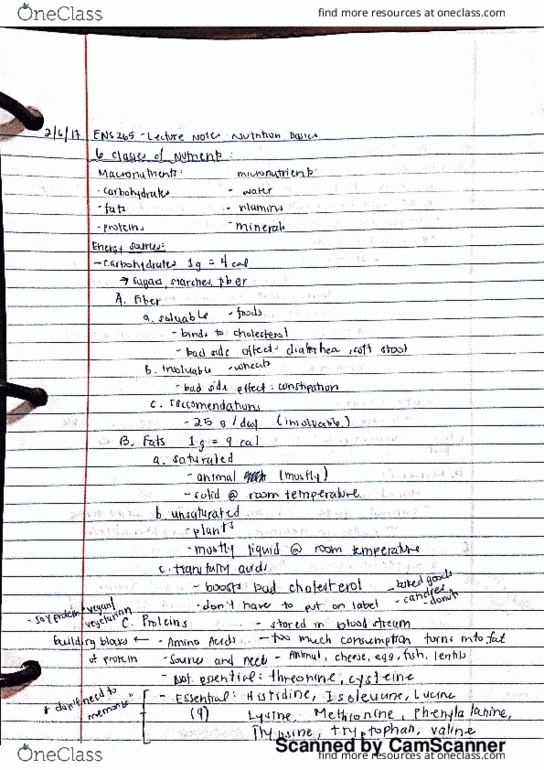 OneClass find more resources at oneclass.com
2/6/17 ENS265 - Lecture Notes Nutrition Basics
6 classes of nutrients:
Macronutrients: micronutrients:
- carbohydrates - water
- fats - vitamins
- proteins - minerals
Energy sources:
- carbohydrates 1g = 4 cal
→ sugars, starches, fiber
A. Fiber
a. soluable - foods
- binds to cholesterol
- bad side effect: diarrhea, soft stool
b. insoluable - wheats
- bad side effect: constipation
c. reccomendations
- 25 g / day (insoluable)
B. Fats 1g = 9 cal
a. saturated
- animal (mostly)
- solid @ room temperature
b. unsaturated
- plants
- mostly liquid @ room temperature
c. trans fatty acids
- boosts bad cholesterol - baked goods
- don't have to put on label - candies - donuts
- soy protein - vegan/ vegetarian C. Proteins - stored in blood stream
building blocks ← - Amino Acids - too much consumption turns into fat
of protein - Sources and meets - Animal, cheese, egg, fish, lentils
- Not essential: threonine, cysteine
* don't need to memorize - Essential: Histidine, Isoleucine, Lucine
(9) Lysine, Methionine, Phenylalanine,
tryptophan, valine
Scanned by CamScanner
OneClass find more resources at oneclass.com